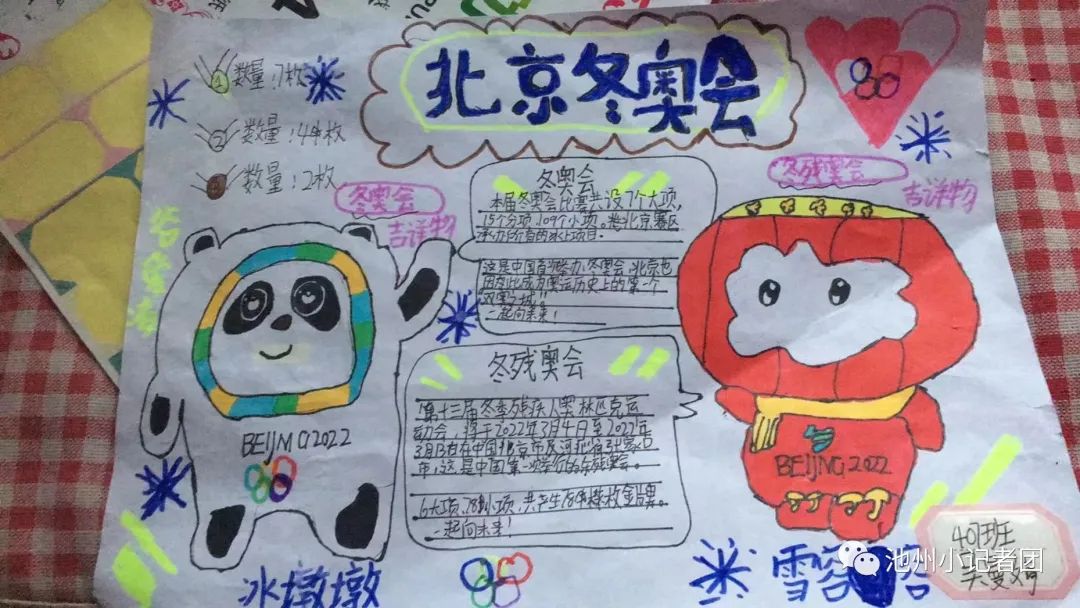 北京冬奥会
① 数量:7枚
② 数量:4枚
③ 数量:2枚
冬奥会
吉详物
冬残奥会
吉详物
冬奥会
本届冬奥会比赛共设7个大项,
15个分项,109个小项。
承办所有的冰上项目。
这是中国首次举办冬奥会,北京也
因此成为奥运历史上的第一个
双奥之城!!
一起向未来!
冬残奥会
第十三届冬季残疾人奥林匹克运
动会,将于2022年3月4日至2022年
3月13日在中国北京市及河北省张家口
市,这是中国第一次举行的冬残奥会。
6大项,78小项,共产生78枚金牌。
一起向未来!
BEIJING2022
BEIJING2022
冰墩墩
雪容
401班
池州小记者团